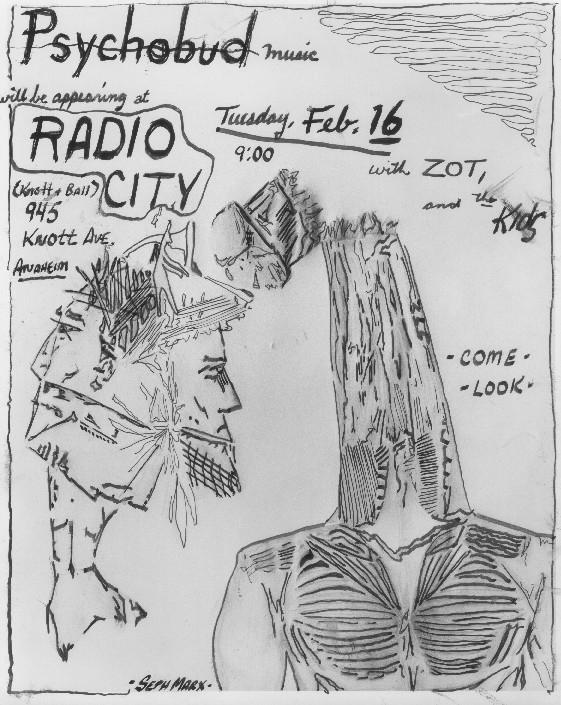 Psychobud music
will be appearing at
RADIO
CITY
Tuesday, Feb. 16
9:00
with ZOT,
and the Kids
(Knott + Ball)
945
KNOTT AVE.
ANAHEIM
- COME -
- LOOK -
- SEPH MARX -